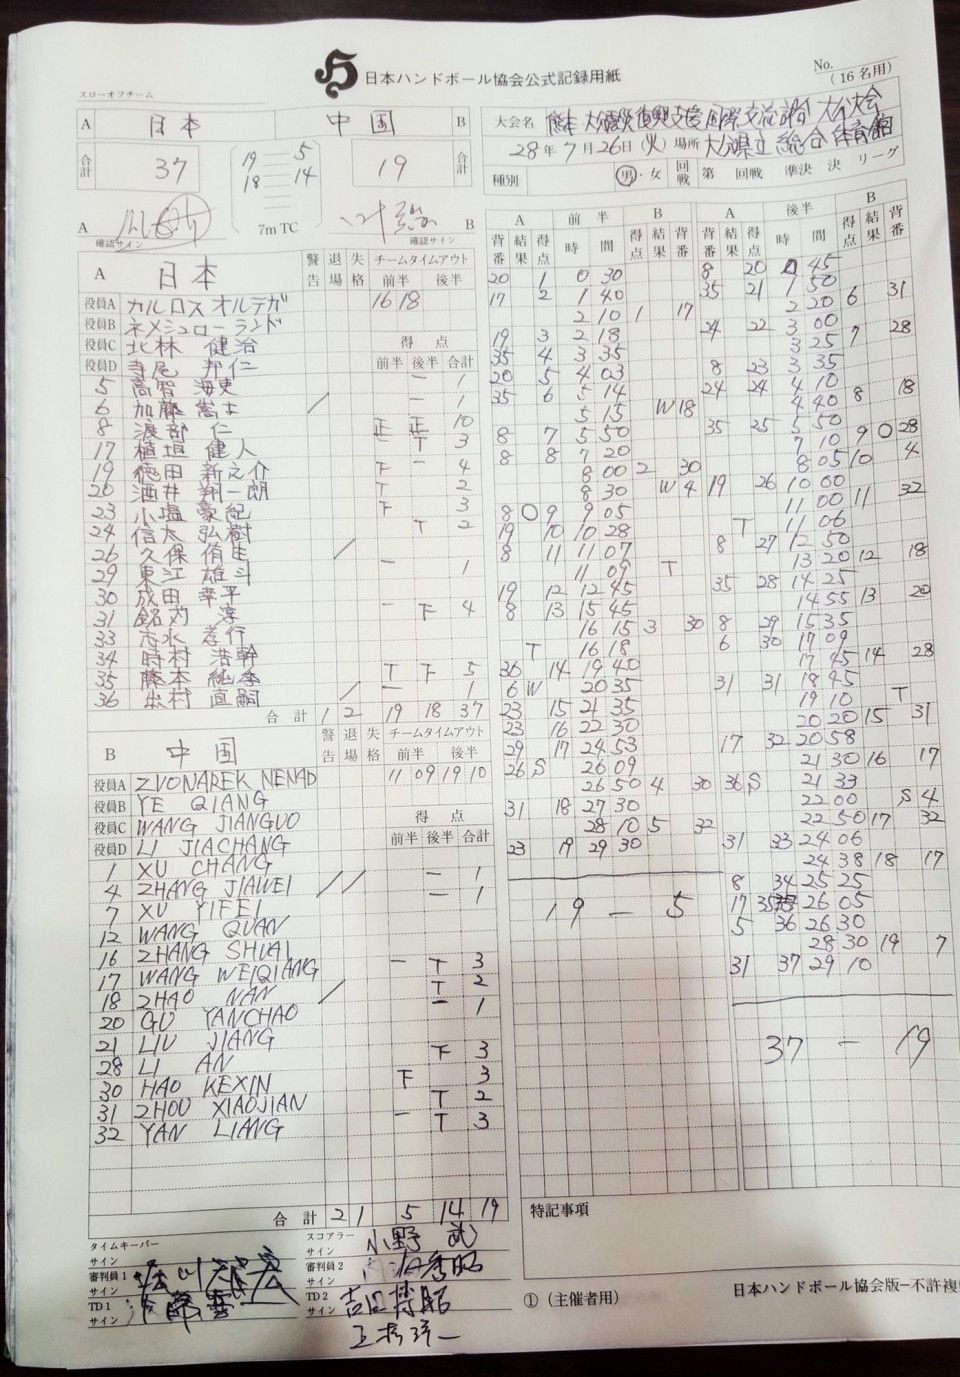 日本ハンドボール協会公式記録用紙
No.
(16名用)
スローオフチーム
A 日本 中国 B
合計 37 19 合計
19 5
18 14
7mTC
A 確認サイン B 確認サイン
大会名 熊本 大分震災復興支援 国際交流 大分大会
28年7月26日(火) 場所 大分県立総合体育館
種別 男・女 回戦 第 回戦 準決 決 リーグ
A 日本
警告 退場 失格 チームタイムアウト
前半 後半
役員A カルロス オルテガ 16 18
役員B ネメシュローランド
役員C 北林 健治 得点
役員D 寺尾 邦仁 前半 後半 合計
5 高智 海吏 一 1
6 加藤 嵩士 一 1
8 渡部 仁 正 正 10
17 植垣 健人 3
19 徳田 新之介 一 4
20 酒井 翔一朗 2
23 小塩 豪紀 3
24 信太 弘樹 2
26 久保 侑生
29 東江 雄斗 一 1
30 成田 幸平
31 銘苅 淳 一 4
33 志水 孝行
34 時村 浩幹
35 藤本 純季 5
36 出村 直嗣 一 1
合計 1 2 19 18 37
B 中国
警告 退場 失格 チームタイムアウト
前半 後半
役員A ZVONAREK NENAD 11 09 19 10
役員B YE QIANG
役員C WANG JIANGUO 得点
役員D LI JIACHANG 前半 後半 合計
1 XU CHANG
4 ZHANG JIAWEI 一 1
7 XU YIFEI 一 1
12 WANG QUAN
16 ZHANG SHUAI
17 WANG WEIQIANG 一 T 3
18 ZHAO NAN T 2
20 GU YANCHAO 一 1
21 LIU JIANG
28 LI AN 3
30 HAO KEXIN 3
31 ZHOU XIAOJIAN T 2
32 YAN LIANG 一 T 3
合計 2 1 5 14 19
A 前半 B
背番 結果 得点 時間 得点 結果 背番
20 1 0 30
17 2 1 40
2 10 1 17
19 3 2 18
35 4 3 35
20 5 4 03
35 6 5 14
5 15 W 18
8 7 5 50
8 8 7 20
8 00 2 30
8 30 W 4
8 O 9 9 05
19 10 10 28
8 11 11 07
11 09 T
19 12 12 45
8 13 15 45
16 15 3 30
T 16 18
36 14 19 40
6 W 20 35
23 15 21 35
23 16 22 30
29 17 24 53
26 S 26 09
26 50 4 30
31 18 27 30
28 10 5 32
23 19 29 30
19 — 5
A 後半 B
背番 結果 得点 時間 得点 結果 背番
8 20 45
35 21 1 50
2 20 6 31
24 22 3 00
3 25 7 28
8 23 3 35
24 24 4 10
4 40 8 18
35 25 5 50
7 10 9 O 28
8 05 10 4
19 26 10 00
11 00 11 32
T 11 06
8 27 12 50
13 20 12 18
35 28 14 25
14 55 13 20
8 29 15 35
6 30 17 09
17 45 14 28
31 31 18 45
19 10 T
20 20 15 31
17 32 20 58
21 30 16 17
36 S 21 33
22 00 S 4
22 50 17 32
31 33 24 06
24 38 18 17
8 34 25 25
17 35 26 05
5 36 26 30
28 30 19 7
31 37 29 10
37 — 19
特記事項
タイムキーパー サイン
スコアラー サイン 小野
審判員1 サイン
審判員2 サイン
TD1 サイン
TD2 サイン
①(主催者用)
日本ハンドボール協会版-不許複